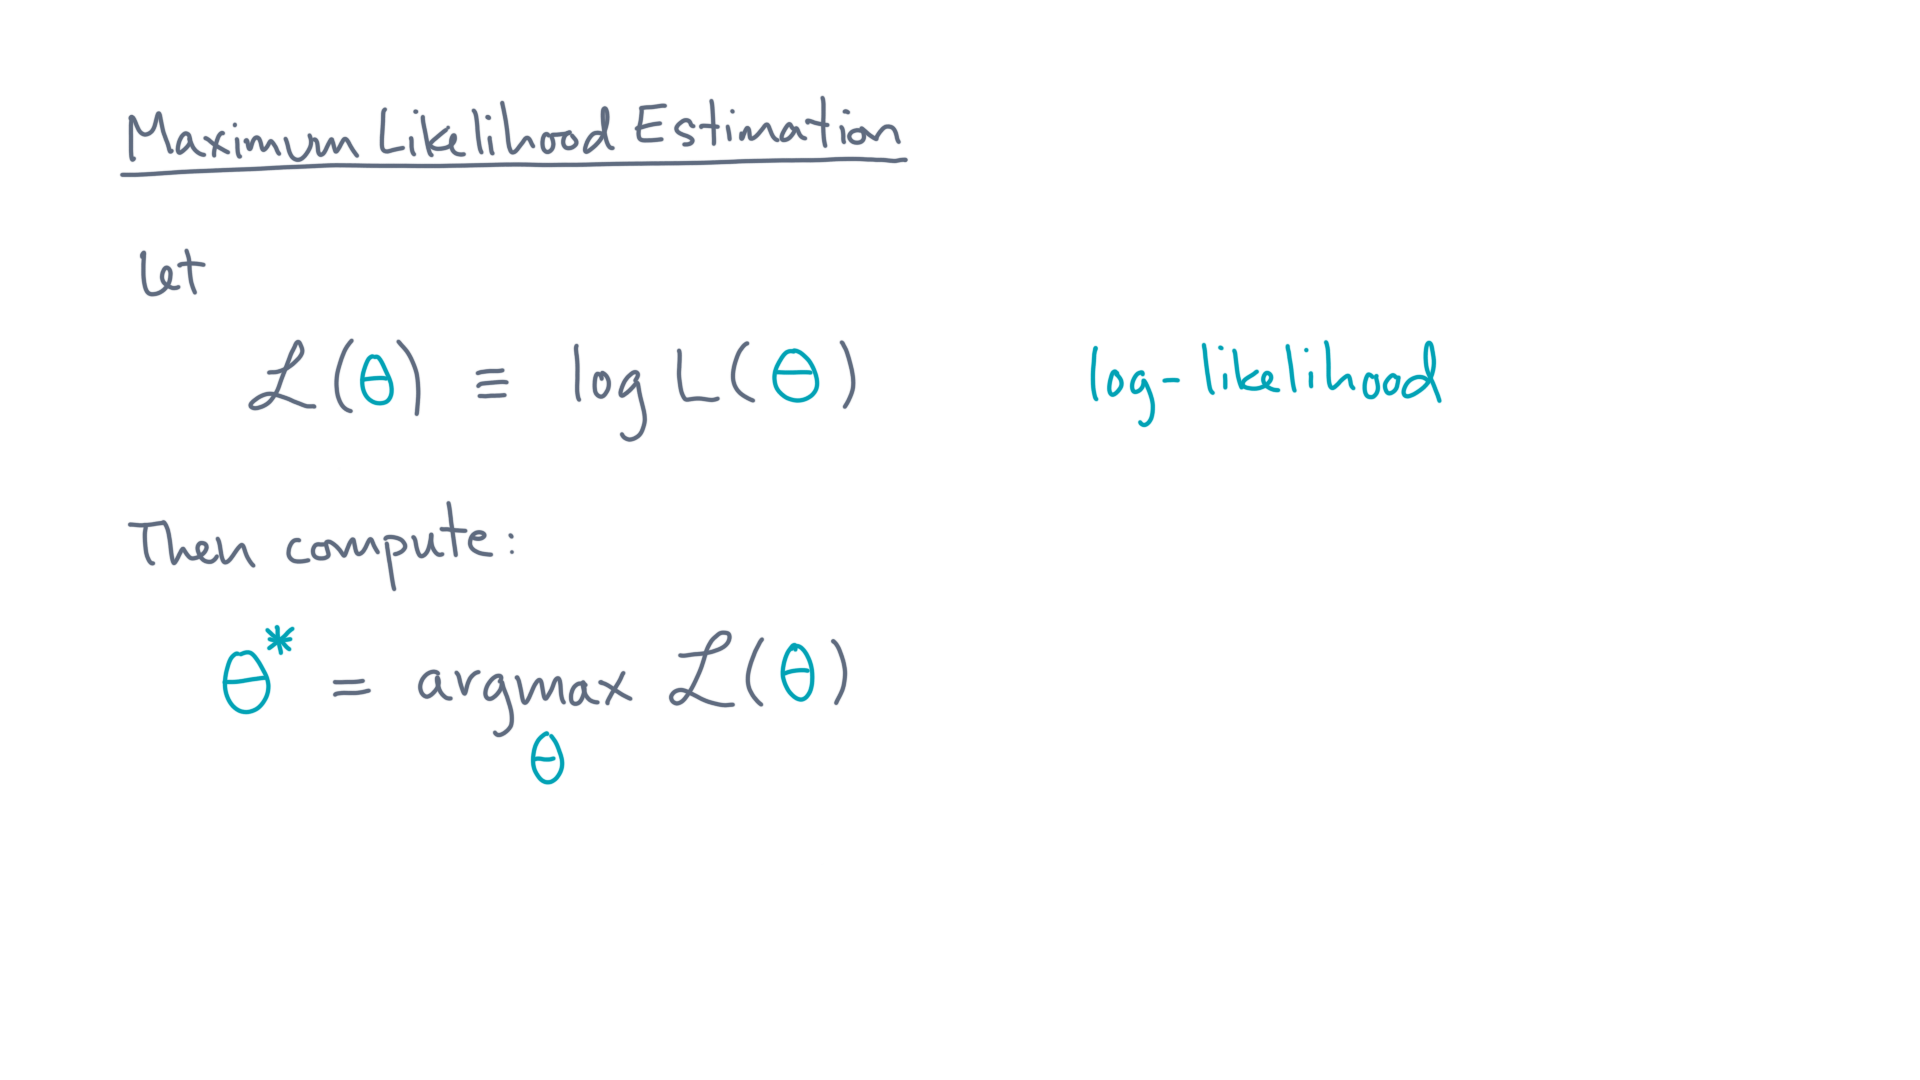 Maximum Likelihood Estimation
Let
ℒ(θ) ≡ log L(θ) log-likelihood
Then compute:
θ* = argmax ℒ(θ)
θ